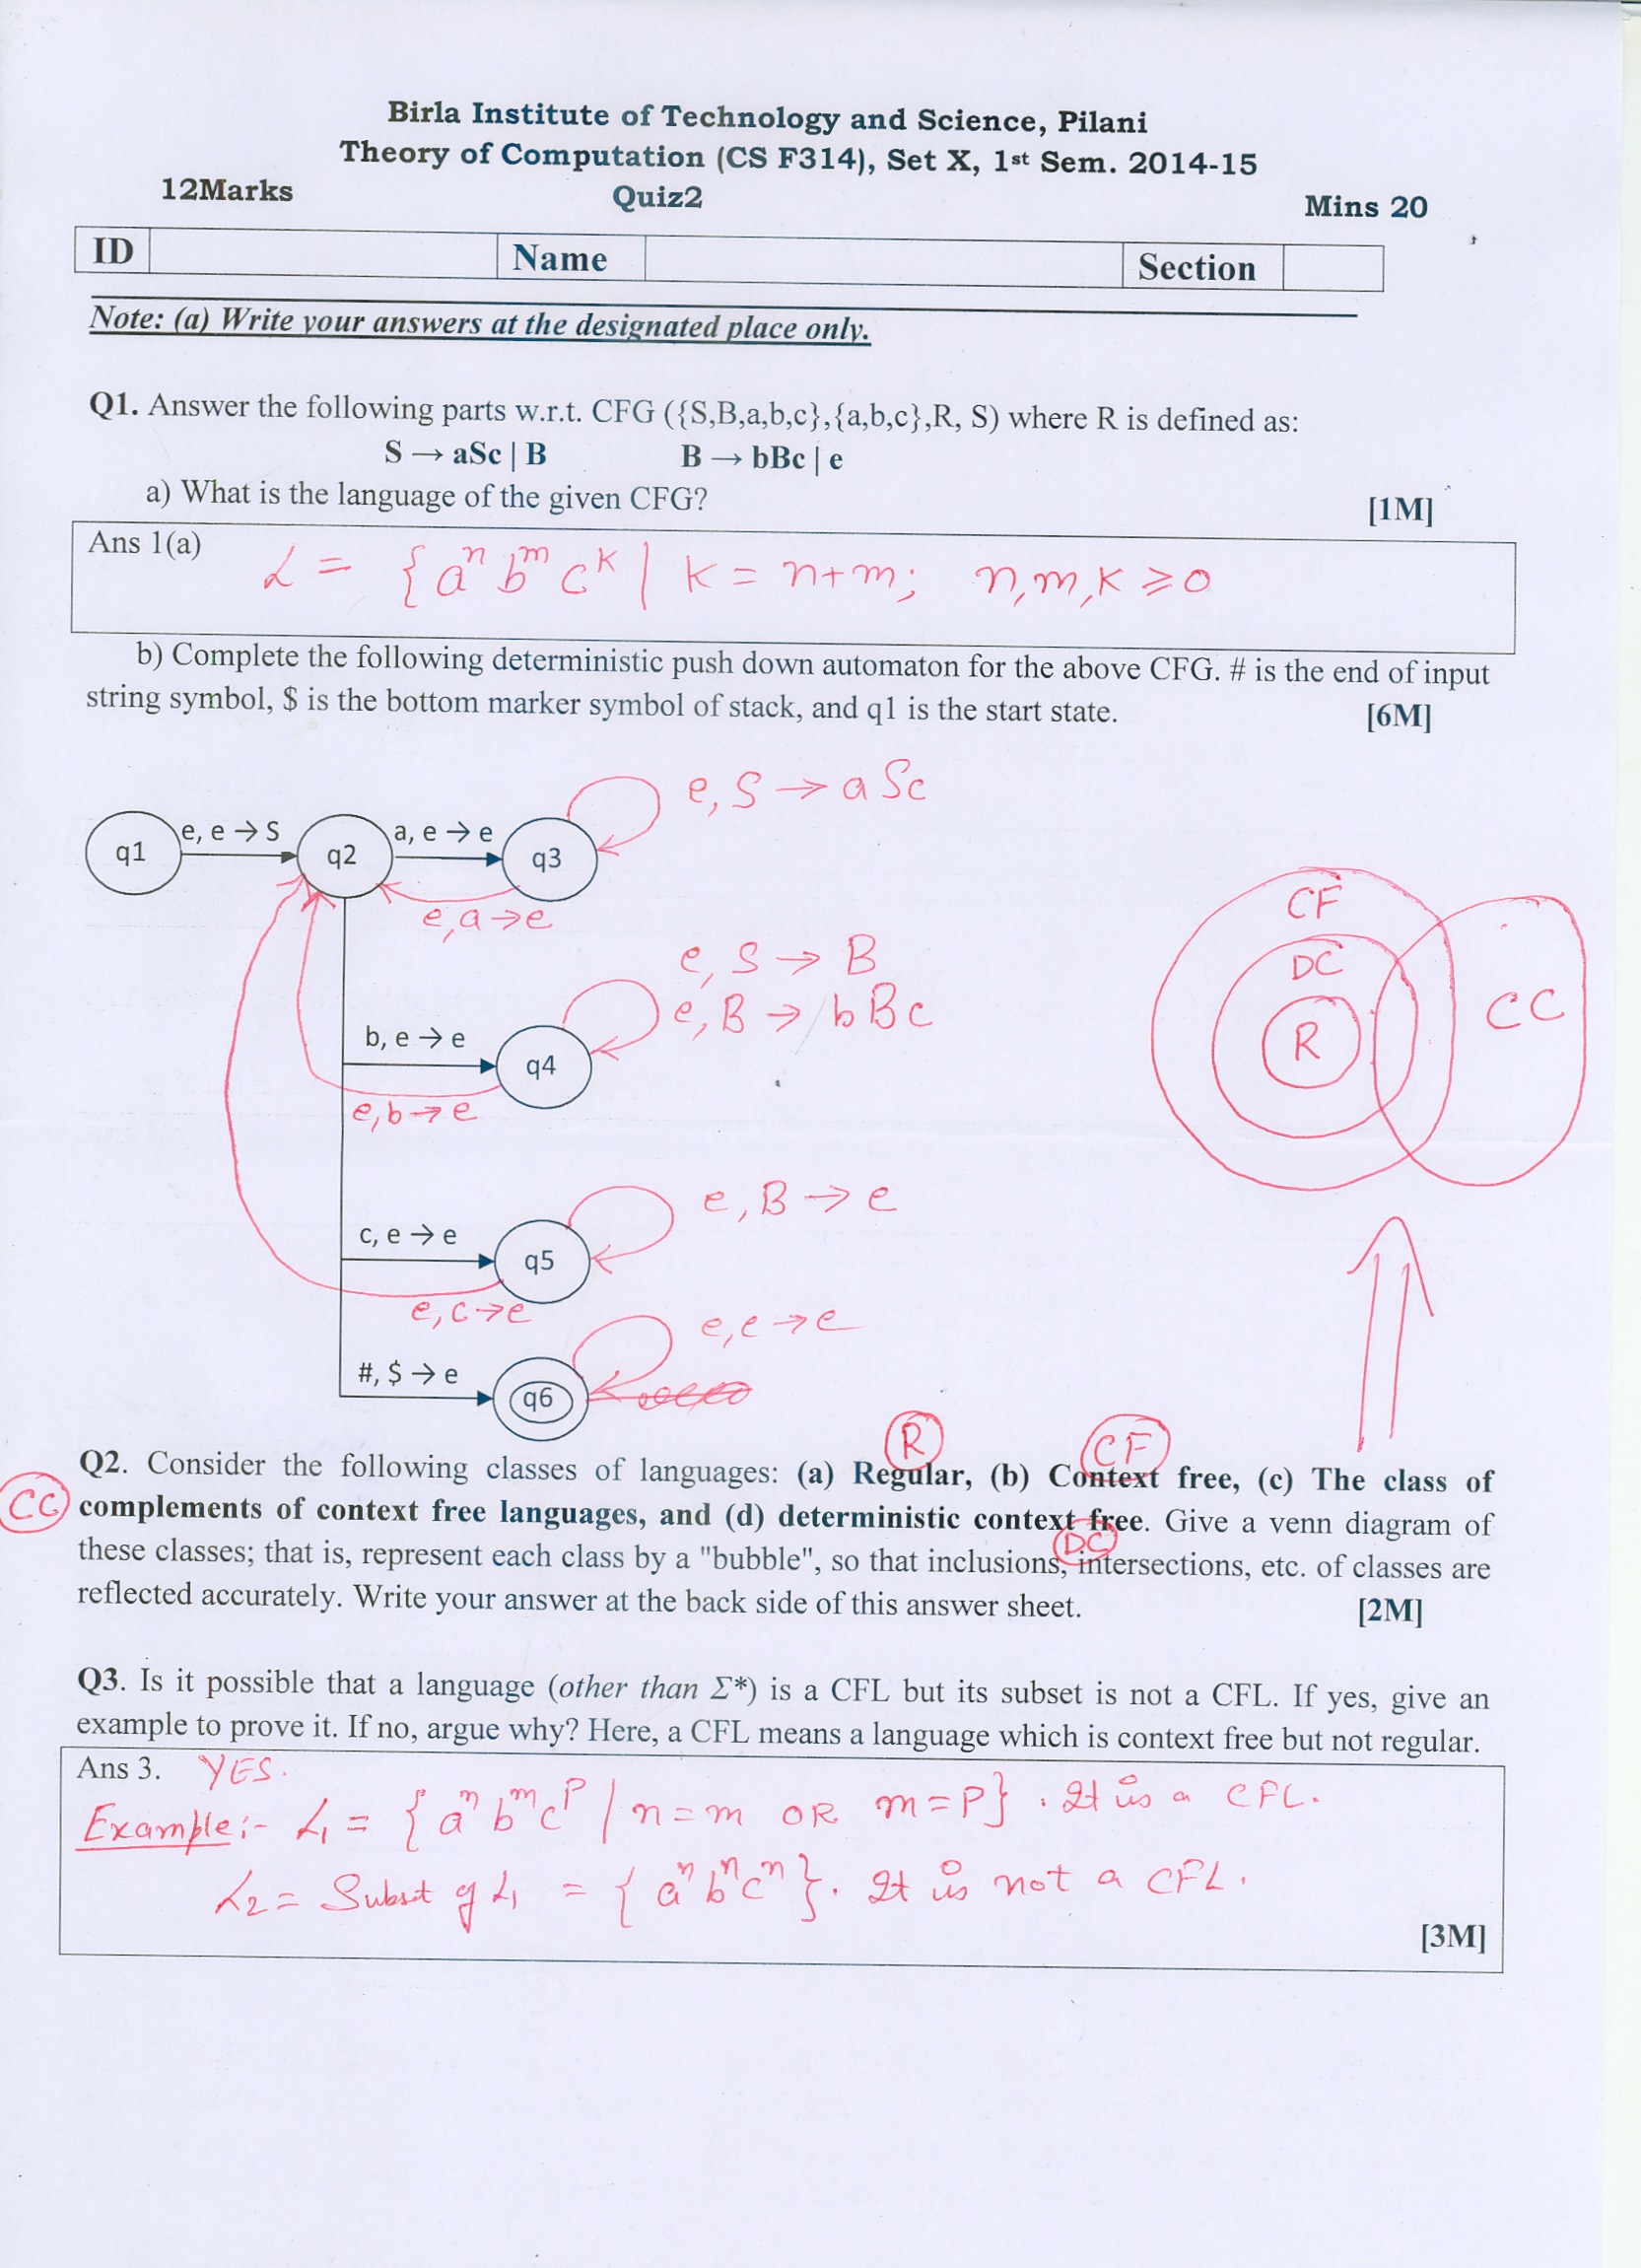 Birla Institute of Technology and Science, Pilani
Theory of Computation (CS F314), Set X, 1st Sem. 2014-15
12Marks Quiz2 Mins 20
ID Name Section
Note: (a) Write your answers at the designated place only.
Q1. Answer the following parts w.r.t. CFG ({S,B,a,b,c},{a,b,c},R, S) where R is defined as:
S → aSc | B B → bBc | e
a) What is the language of the given CFG? [1M]
Ans 1(a) L = { aⁿ bᵐ cᴷ | K = n+m; n,m,K ≥ 0
b) Complete the following deterministic push down automaton for the above CFG. # is the end of input
string symbol, $ is the bottom marker symbol of stack, and q1 is the start state. [6M]
e, S → aSc
q1 e, e → S q2 a, e → e q3
e, a → e
CF
DC
R
CC
e, S → B
e, B → bBc
b, e → e q4
e, b → e
e, B → e
c, e → e q5
e, c → e
e, e → e
#, $ → e q6
R CF
Q2. Consider the following classes of languages: (a) Regular, (b) Context free, (c) The class of
CC complements of context free languages, and (d) deterministic context free. Give a venn diagram of
DC
these classes; that is, represent each class by a "bubble", so that inclusions, intersections, etc. of classes are
reflected accurately. Write your answer at the back side of this answer sheet. [2M]
Q3. Is it possible that a language (other than Σ*) is a CFL but its subset is not a CFL. If yes, give an
example to prove it. If no, argue why? Here, a CFL means a language which is context free but not regular.
Ans 3. YES.
Example:- L₁ = { aⁿ bᵐ cᵖ | n=m OR m=P} . It is a CFL.
L₂ = Subset of L₁ = { aⁿ bⁿ cⁿ }. It is not a CFL.
[3M]